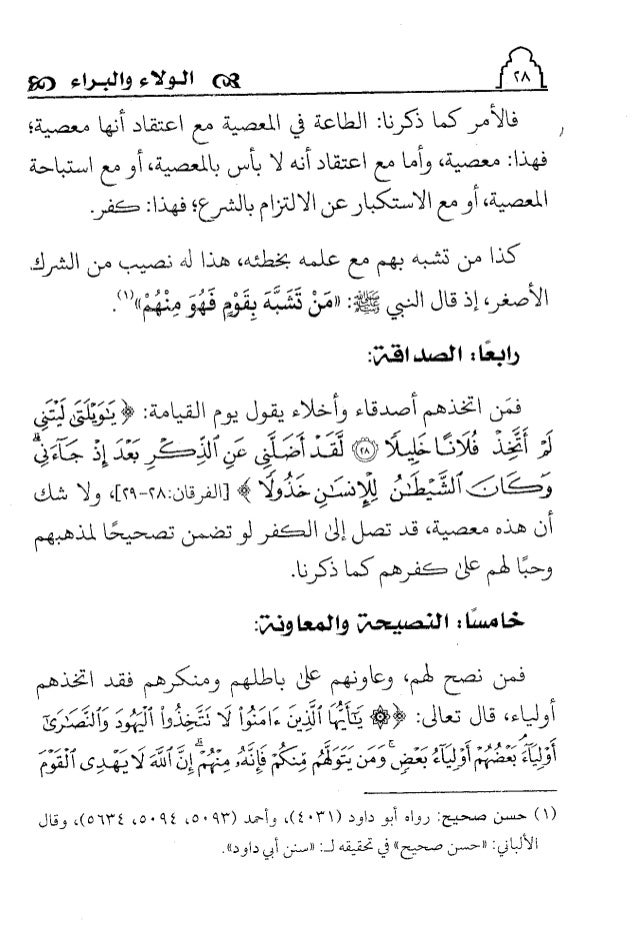 ٢٨
الولاء والبراء
فالأمر كما ذكرنا: الطاعة في المعصية مع اعتقاد أنها معصية؛
فهذا: معصية، وأما مع اعتقاد أنه لا بأس بالمعصية، أو مع استباحة
المعصية، أو مع الاستكبار عن الالتزام بالشرع؛ فهذا: كفر.
كذا من تشبه بهم مع علمه بخطئه، هذا له نصيب من الشرك
الأصغر، إذ قال النبي ﷺ: «مَنْ تَشَبَّهَ بِقَوْمٍ فَهُوَ مِنْهُمْ»(١).
رابعًا: الصداقة:
فمَن اتخذهم أصدقاء وأخلاء يقول يوم القيامة: ﴿ يَٰوَيْلَتَىٰ لَيْتَنِي
لَمْ أَتَّخِذْ فُلَانًا خَلِيلًا ٢٨ لَّقَدْ أَضَلَّنِي عَنِ الذِّكْرِ بَعْدَ إِذْ جَآءَنِيۗ
وَكَانَ ٱلشَّيْطَٰنُ لِلْإِنسَٰنِ خَذُولًا ﴾ [الفرقان:٢٨-٢٩]، ولا شك
أن هذه معصية، قد تصل إلى الكفر لو تضمن تصحيحًا لمذهبهم
وحبًا لهم على كفرهم كما ذكرنا.
خامسًا: النصيحة والمعاونة:
فمن نصح لهم، وعاونهم على باطلهم ومنكرهم فقد اتخذهم
أولياء، قال تعالى: ﴿ ۞ يَٰٓأَيُّهَا ٱلَّذِينَ ءَامَنُوا۟ لَا تَتَّخِذُوا۟ ٱلْيَهُودَ وَٱلنَّصَٰرَىٰٓ
أَوْلِيَآءَۘ بَعْضُهُمْ أَوْلِيَآءُ بَعْضٍۚ وَمَن يَتَوَلَّهُم مِّنكُمْ فَإِنَّهُۥ مِنْهُمْۗ إِنَّ ٱللَّهَ لَا يَهْدِى ٱلْقَوْمَ
(١) حسن صحيح: رواه أبو داود (٤٠٣١)، وأحمد (٥٠٩٣، ٥٠٩٤، ٥٦٣٤)، وقال
الألباني: «حسن صحيح» في تحقيقه لـ: «سنن أبي داود».